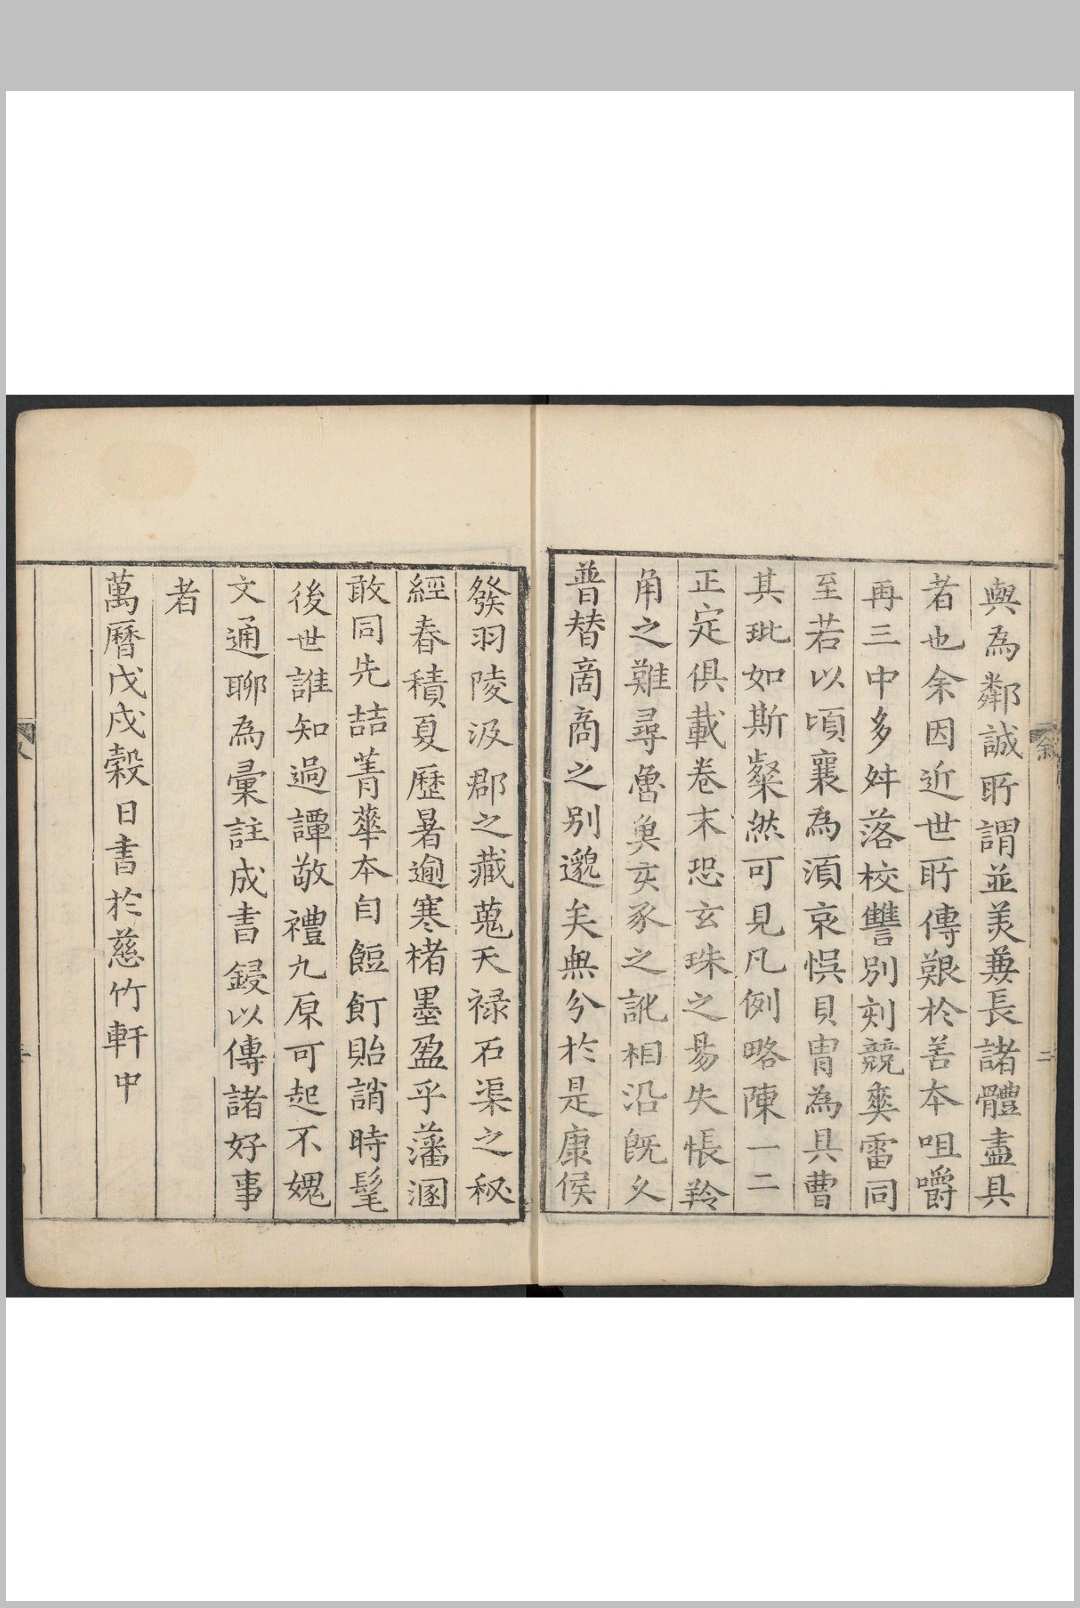 輿為鄰誠所謂並美兼長諸體盡具
者也余因近世所傳艱於善本咀嚼
再三中多舛落校讐別刻競爽雷同
至若以頃襄為湏哀悞貝胄為具曹
其玼如斯粲然可見凡例略陳一二
正定俱載卷末恐玄珠之易失悵羚
角之難尋魯臭亥豕之訛相沿既久
普替啇商之別邈矣無分於是康侯
發羽陵汲郡之藏蒐天禄石渠之秘
經春積夏歷暑逾寒楮墨盈乎藩溷
敢同先喆菁華本自餖飣貽誚時髦
後世誰知過譚敬禮九原可起不媿
文通聊為彙註成書鋟以傳諸好事
者
萬曆戊戌穀日書於慈竹軒中
敘
二